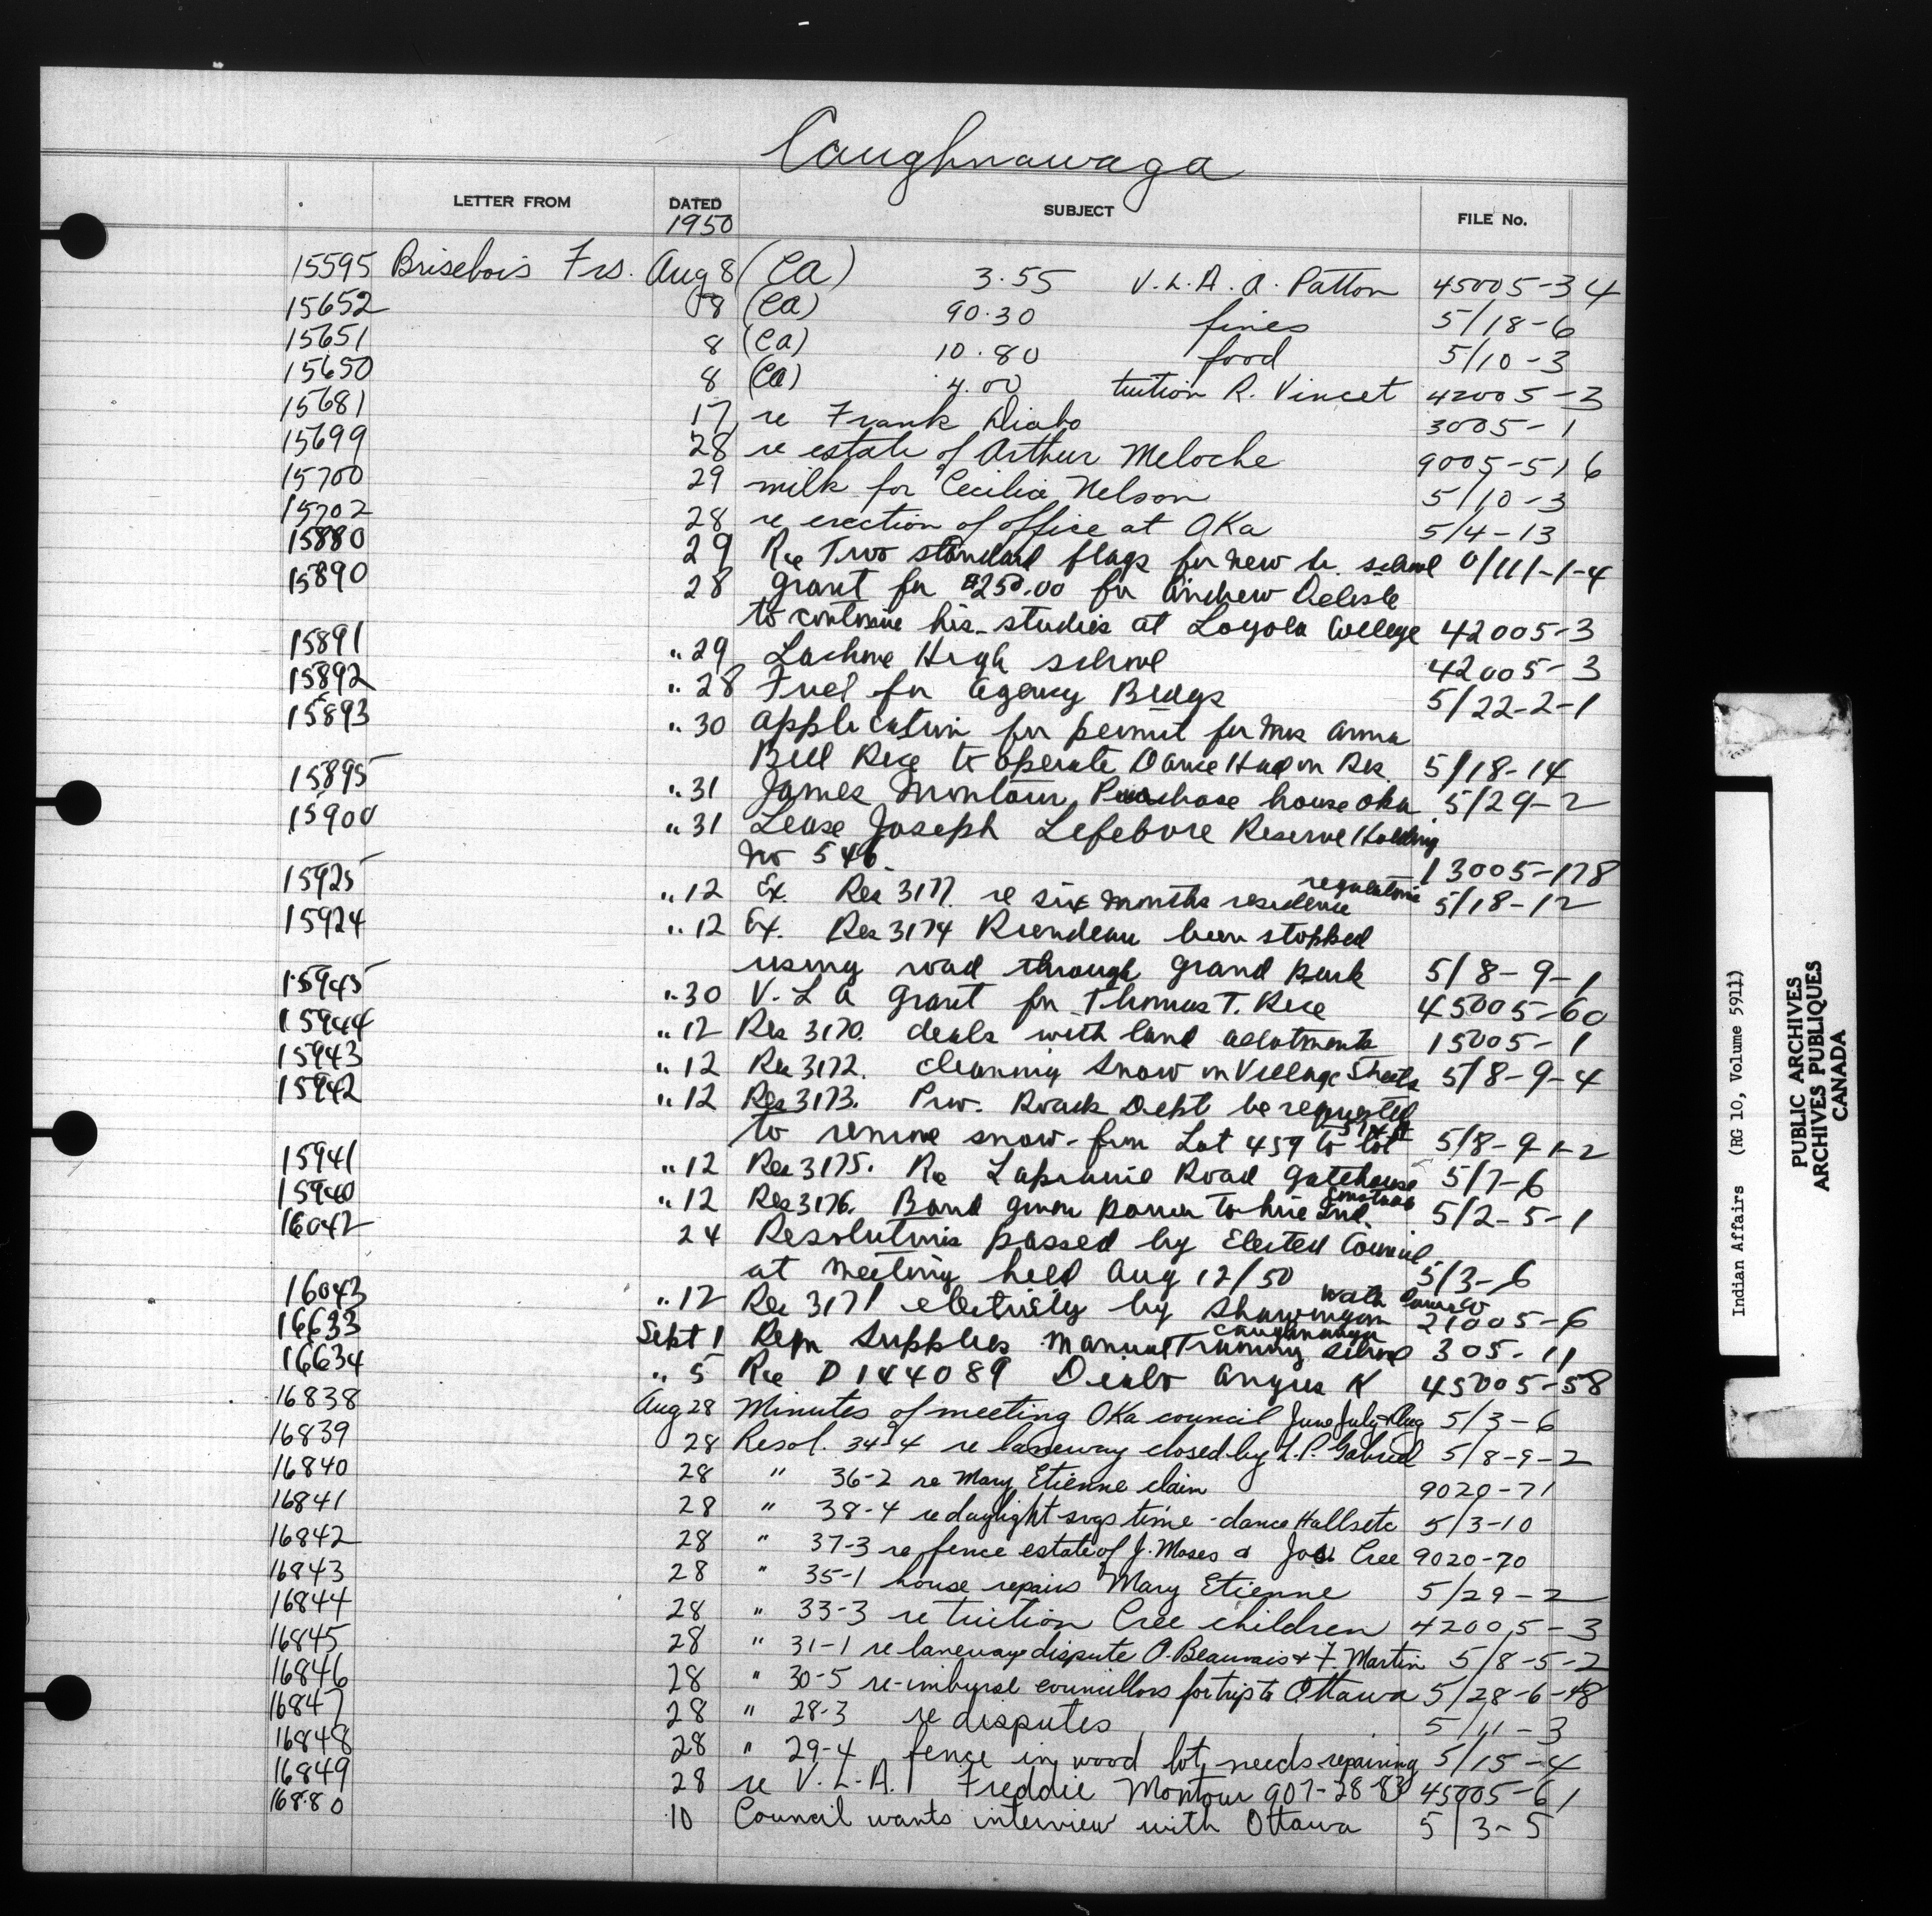 Caughnawaga
LETTER FROM DATED SUBJECT FILE No.
1950
15595 Brisebois Frs. Aug 8 (CA) 3.55 V.L.A. A. Patton 45005-34
15652 8 (CA) 90.30 fines 5/18-6
15651 8 (CA) 10.80 food 5/10-3
15650 8 (CA) 4.00 tuition R. Vincet 42005-3
15681 17 re Frank Diabo 3005-1
15699 28 re estate of Arthur Meloche 9005-516
15700 29 milk for Cecilia Nelson 5/10-3
15702 28 re erection of office at OKa 5/4-13
15880 29 Re Two standard flags for new school 0/111-1-4
15890 28 grant for $250.00 for Andrew Delisle
to continue his studies at Loyola College 42005-3
15891 " 29 Lachine High school 42005-3
15892 " 28 Fuel for Agency Bldgs 5/22-2-1
15893 " 30 application for permit for Mrs Anna
Bell Rice to operate Dance Hall on Res. 5/18-14
15895 " 31 James Montour Purchase house Oka 5/29-2
15900 " 31 Lease Joseph Lefebvre Reserve Holding
No 546. 13005-178
15925 " 12 Ex. Res 3177. re six months residence regulations 5/18-12
15924 " 12 Ex. Res 3174 been stopped
using road through grand park 5/8-9-1
15945 " 30 V.L.A grant for Thomas T. Rice 45005-60
15944 " 12 Res 3170. deals with land allotments 15005-1
15943 " 12 Res 3172. cleaning snow in Village Streets 5/8-9-4
15942 " 12 Res 3173. Prov. Roads Dept be requested
to remove snow from Lot 459 to lot 5/8-9-1-2
15941 " 12 Res 3175. Re Laprairie Road Gatehouse 5/7-6
15940 " 12 Res 3176. Band given power to hire Ind. 5/2-5-1
16042 24 Resolutions passed by Elected Council
at meeting held Aug 12/50 5/3-6
16043 " 12 Res 3171 electricity by Shawinigan Water Power Co 21005-6
16633 Sept 1 Reqn Supplies Manual Training School Caughnawaga 305-11
16634 " 5 Re D144089 Deabo Angus K 45005-58
16838 Aug 28 Minutes of meeting OKa council June July & Aug 5/3-6
16839 28 Resol. 34-4 re laneway closed by L.P. Gabriel 5/8-9-2
16840 28 " 36-2 re Mary Etienne claim 9020-71
16841 28 " 38-4 re daylight svgs time - dance Halls etc 5/3-10
16842 28 " 37-3 re fence estate of J. Moses & Cree 9020-70
16843 28 " 35-1 house repairs Mary Etienne 5/29-2
16844 28 " 33-3 re tuition Cree children 42005-3
16845 28 " 31-1 re laneway dispute A. Beauvais & F. Martin 5/8-5-2
16846 28 " 30-5 re-imburse councillors for trip to Ottawa 5/28-6-48
16847 28 " 28-3 re disputes 5/11-3
16848 28 " 29-4 fence in wood lot needs repairing 5/15-4
16849 28 re V.L.A. Freddie Montour 907-28-83 45005-61
16880 10 Council wants interview with Ottawa 5/3-5
Indian Affairs (RG 10, Volume 5911)
PUBLIC ARCHIVES
ARCHIVES PUBLIQUES
CANADA